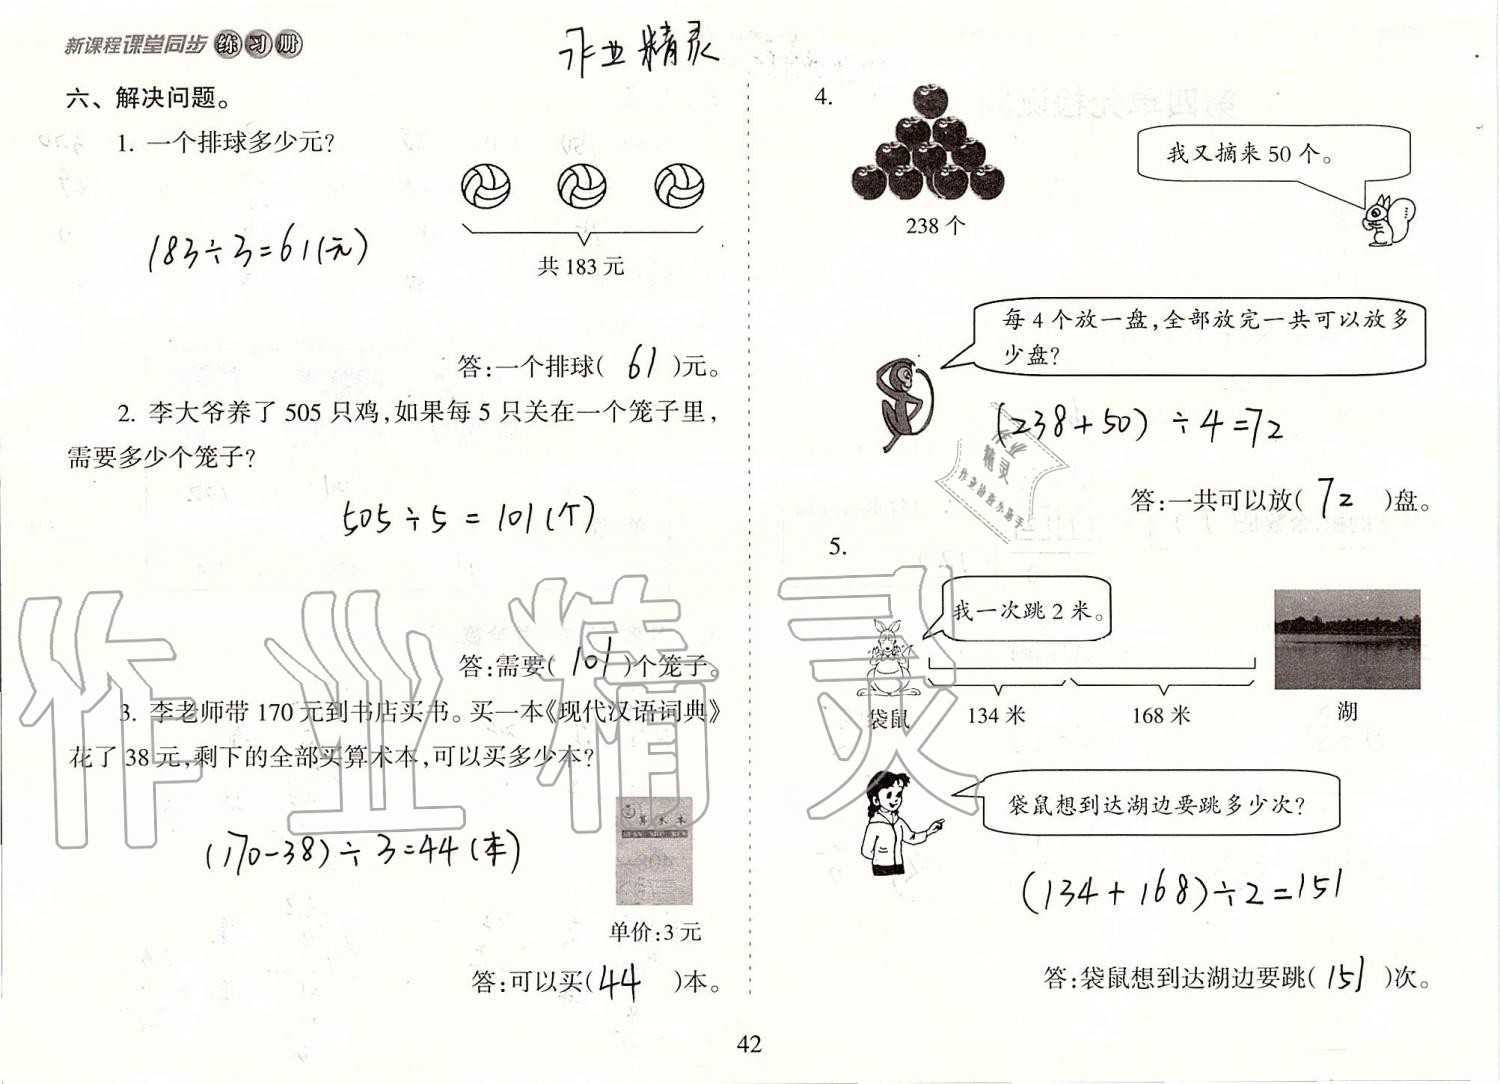 新课程课堂同步练习册
作业精灵
六、解决问题。
1. 一个排球多少元?
183÷3=61(元)
共183元
答:一个排球( 61 )元。
2. 李大爷养了505只鸡,如果每5只关在一个笼子里,
需要多少个笼子?
505÷5=101(个)
答:需要( 101 )个笼子。
3. 李老师带170元到书店买书。买一本《现代汉语词典》
花了38元,剩下的全部买算术本,可以买多少本?
(170-38)÷3=44(本)
算术本
单价:3元
答:可以买( 44 )本。
4.
238个
我又摘来50个。
每4个放一盘,全部放完一共可以放多
少盘?
(238+50)÷4=72
答:一共可以放( 72 )盘。
5.
我一次跳2米。
袋鼠
134米
168米
湖
袋鼠想到达湖边要跳多少次?
(134+168)÷2=151
答:袋鼠想到达湖边要跳( 151 )次。
42
作业精灵
作业精灵